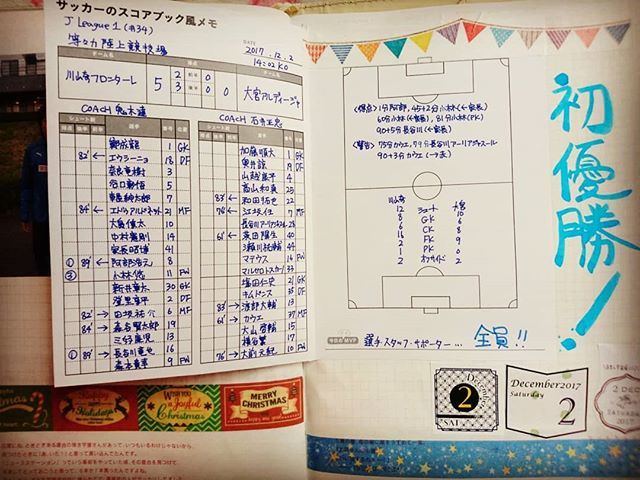 サッカーのスコアブック風メモ
J League 1 (#34)
等々力陸上競技場
DATE
2017.12.2
14:02 KO
川崎フロンターレ 5 2 前半 0 0 大宮アルディージャ
3 後半 0
COACH 鬼木達
COACH 石井正忠
鄭成龍 1 GK
82' ← エウシーニョ 18 DF
奈良竜樹 3
谷口彰悟 5
車屋紳太郎 7
84' ← エドゥアルドネット 21 MF
大島僚太 10
中村憲剛 14
家長昭博 41
① 89' ← 阿部浩之 8
③ 小林悠 11 FW
新井章太 30 GK
登里享平 2 DF
82' → 田坂祐介 6 MF
84' → 森谷賢太郎 19
三好康児 13
① 89' → 長谷川竜也 16
森本貴幸 9 FW
加藤順大 1 GK
奥井諒 19 DF
山越康平 4
高山和真 23
83' ← 和田拓也 22
76' ← 江坂任 7 MF
長谷川アーリアジャスール 28
61' ← 茨田陽生 40
瀬川祐輔
マテウス 16
マルセロトスカーノ 33
塩田仁史 21 GK
キムドンス 35 DF
83' → 渡部大輔 13
61' → カウエ 37 MF
大山啓輔 15
横谷繁 17
76' → 大前元紀 10 FW
<得点> 1分阿部, 45+2分小林(←家長)
60分小林(←家長), 81分小林(PK)
90+5分長谷川(←家長)
<警告> 75分カウエ, 77分長谷川アーリアジャスール
90+3分カウエ (→退)
川崎 大宮
12 シュート 10
8 GK 6
6 CK 8
11 FK 9
1 PK 0
2 オフサイド 2
今日のMVP
選手・スタッフ・サポーター… 全員!!
初優勝!
December
2
SAT
December2017
Saturday
2
2 DEC
2017
Happy Holidays
WISH YOU a Joyful Christmas
MERRY CHRISTMAS